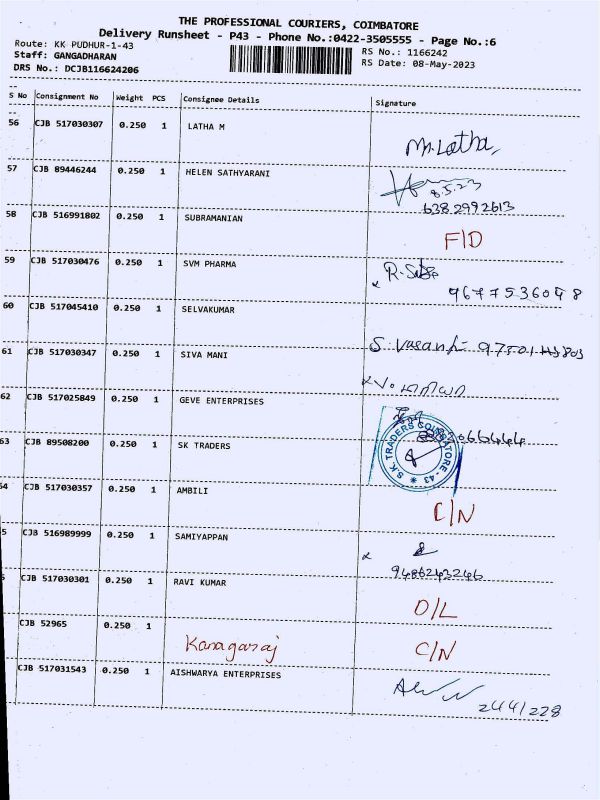 THE PROFESSIONAL COURIERS, COIMBATORE
Delivery Runsheet - P43 - Phone No.:0422-3505555 - Page No.:6
Route: KK PUDHUR-1-43
RS No.: 1166242
Staff: GANGADHARAN
RS Date: 08-May-2023
DRS No.: DCJB116624206
S No Consignment No Weight PCS Consignee Details Signature
56 CJB 517030307 0.250 1 LATHA M
M. Latha
57 CJB 89446244 0.250 1 HELEN SATHYARANI
8.5.23
6382992613
58 CJB 516991802 0.250 1 SUBRAMANIAN
F/D
59 CJB 517030476 0.250 1 SVM PHARMA
9677536098
60 CJB 517045410 0.250 1 SELVAKUMAR
S Vasanthi
61 CJB 517030347 0.250 1 SIVA MANI
62 CJB 517025849 0.250 1 GEVE ENTERPRISES
63 CJB 89508200 0.250 1 SK TRADERS
S.K. TRADERS COIMBATORE - 43
54 CJB 517030357 0.250 1 AMBILI
C/N
5 CJB 516989999 0.250 1 SAMIYAPPAN
9486243246
CJB 517030301 0.250 1 RAVI KUMAR
D/L
CJB 52965 0.250 1
Kanagaraj C/N
CJB 517031543 0.250 1 AISHWARYA ENTERPRISES
2441228